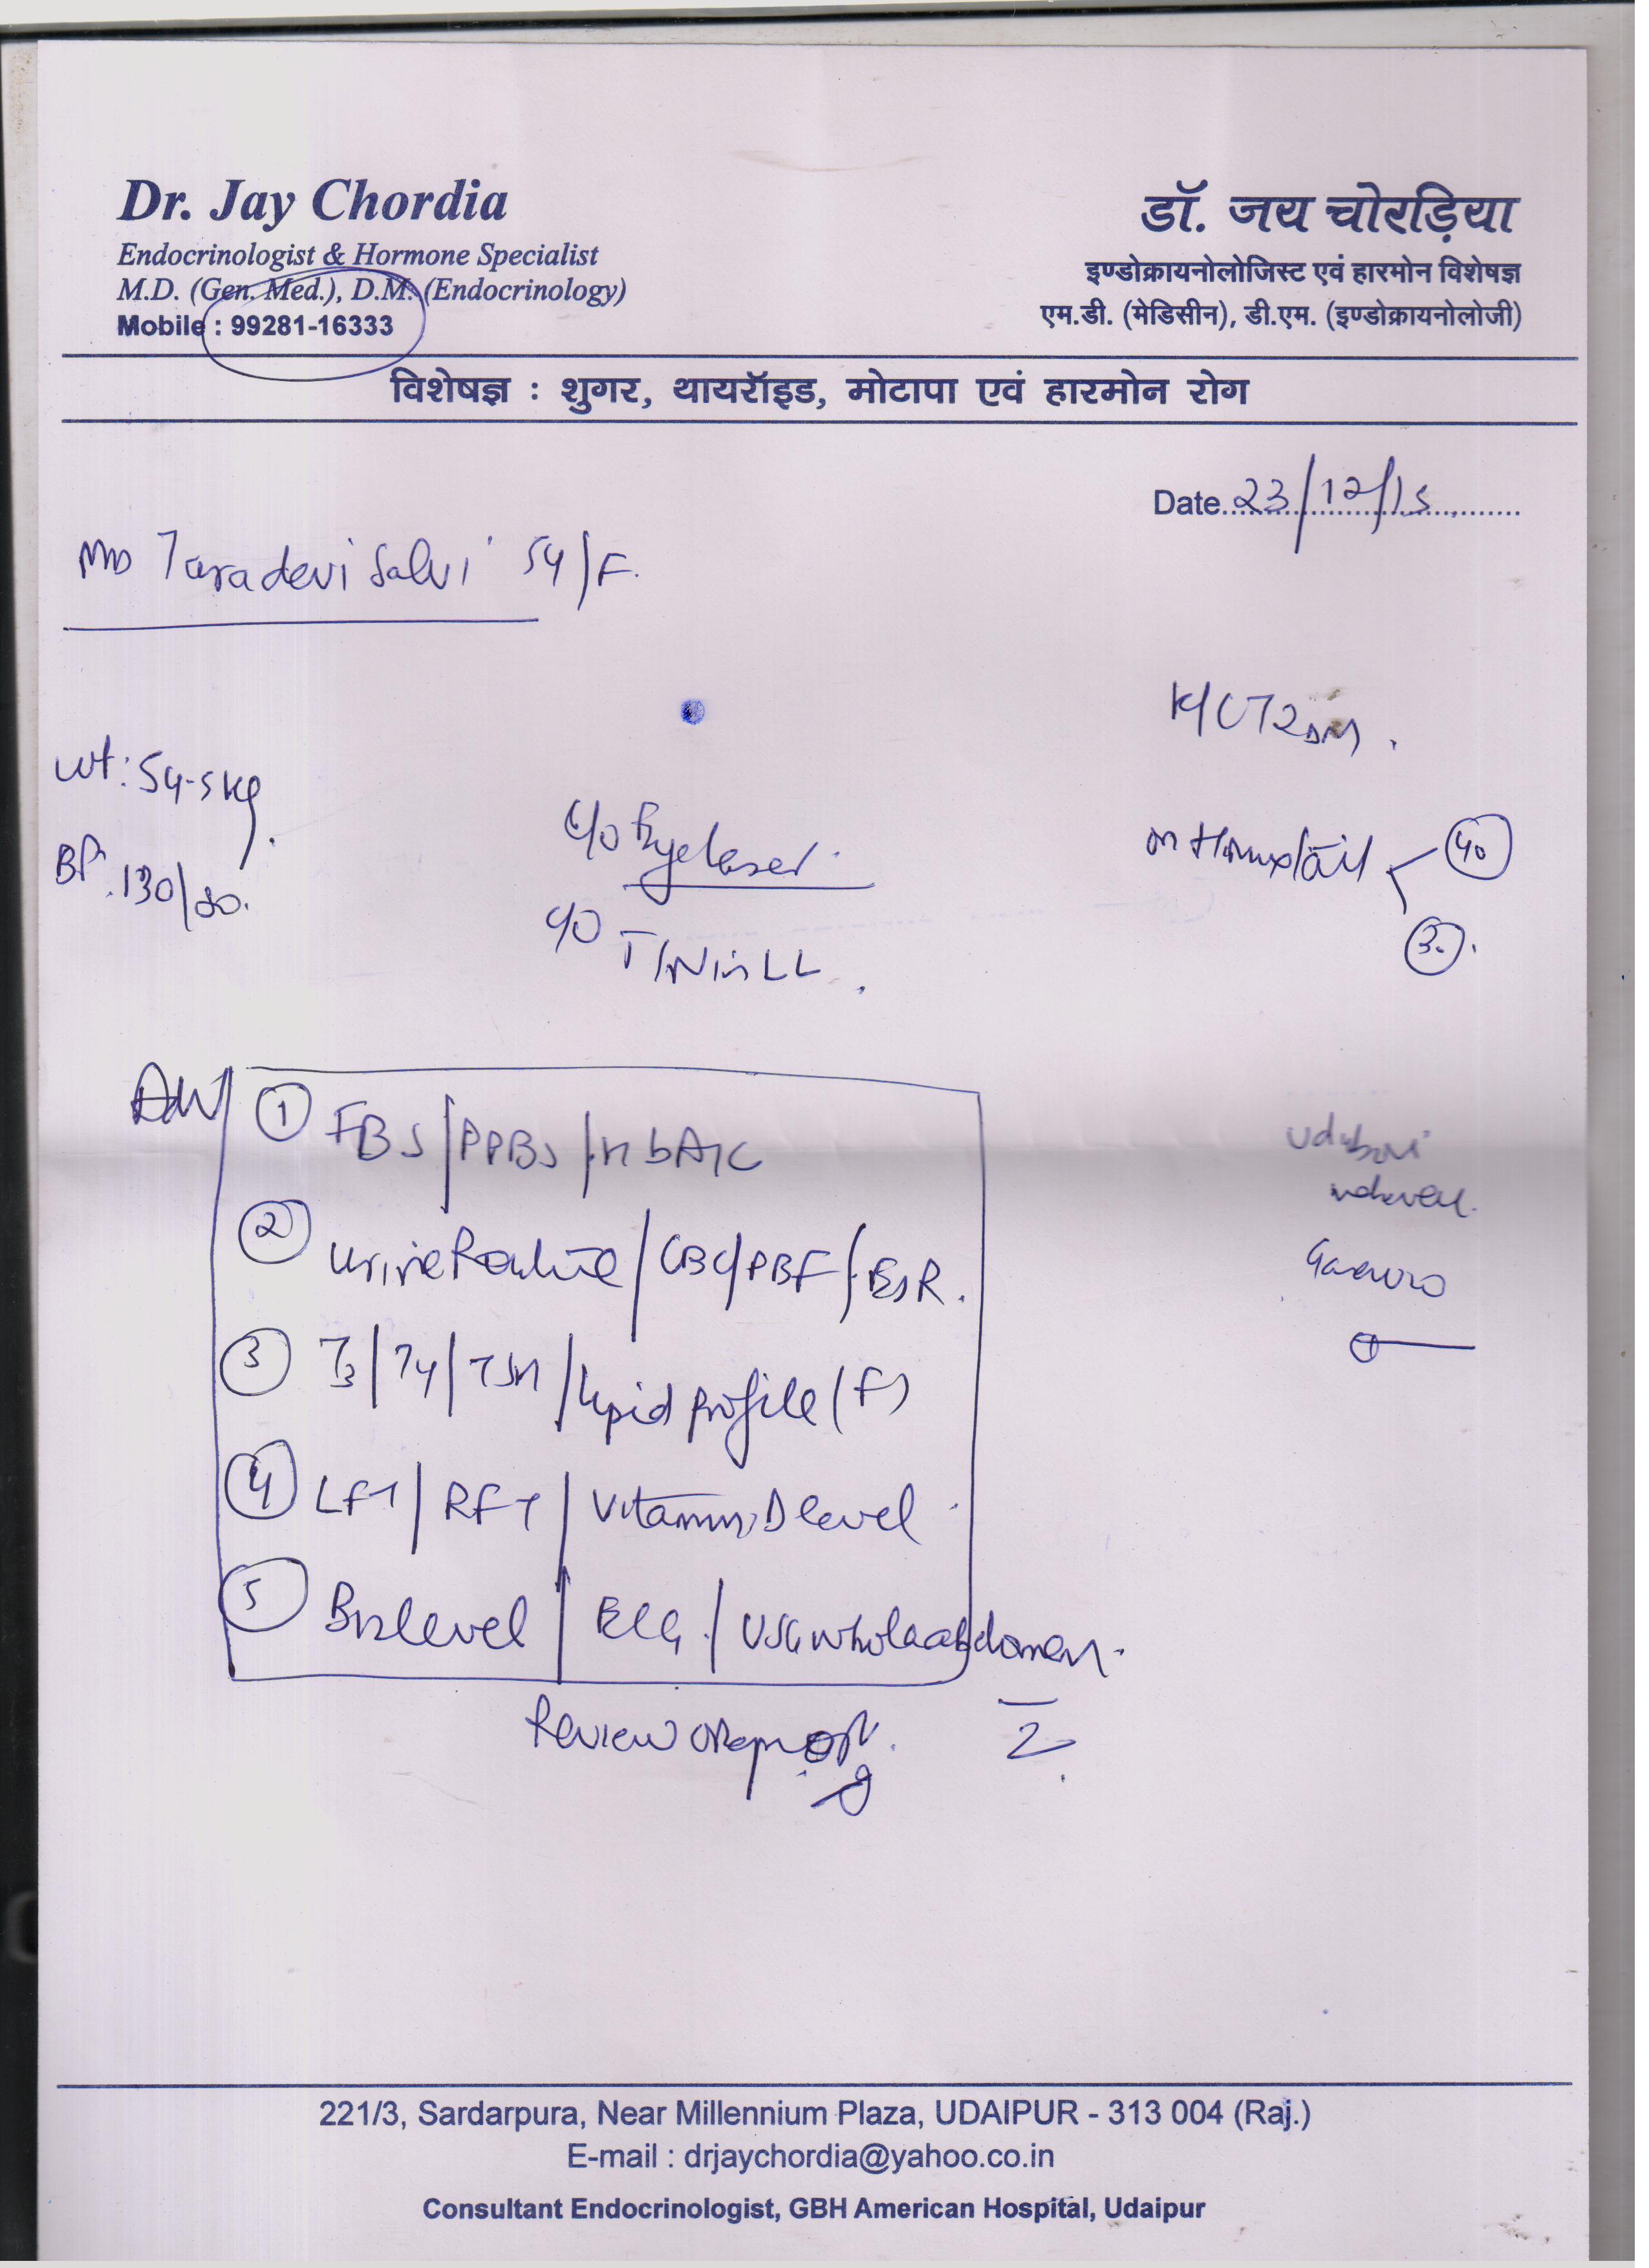 Dr. Jay Chordia
Endocrinologist & Hormone Specialist
M.D. (Gen. Med.), D.M. (Endocrinology)
Mobile : 99281-16333
डॉ. जय चोरड़िया
इण्डोक्रायनोलोजिस्ट एवं हारमोन विशेषज्ञ
एम.डी. (मेडिसीन), डी.एम. (इण्डोक्रायनोलोजी)
विशेषज्ञ : शुगर, थायरॉइड, मोटापा एवं हारमोन रोग
Date 23/12/15
Taradevi Salvi 54/F.
K/C T2DM.
Wt: 54.5 kg.
BP: 130/80.
c/o Eye laser.
on 40
30.
c/o T/N in LL.
Adv
1 FBS/PPBS/HbA1C
2 Urine Routine/CBC/PBF/ESR.
3 T3/T4/TSH/Lipid profile (F)
4 LFT/RFT/Vitamin D level
5 B12 level/ECG/USG whole abdomen.
Review
2
221/3, Sardarpura, Near Millennium Plaza, UDAIPUR - 313 004 (Raj.)
E-mail : drjaychordia@yahoo.co.in
Consultant Endocrinologist, GBH American Hospital, Udaipur